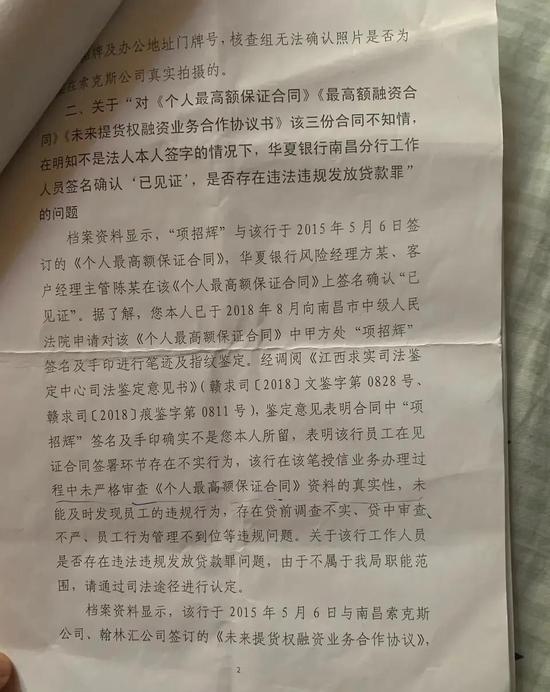 牌及办公地址门牌号，核查组无法确认照片是否为
在索克斯公司真实拍摄的。
二、关于“对《个人最高额保证合同》《最高额融资合
同》《未来提货权融资业务合作协议书》该三份合同不知情，
在明知不是法人本人签字的情况下，华夏银行南昌分行工作
人员签名确认‘已见证’，是否存在违法违规发放贷款罪”
的问题
档案资料显示，“项招辉”与该行于2015年5月6日签
订的《个人最高额保证合同》，华夏银行风险经理方某、客
户经理主管陈某在该《个人最高额保证合同》上签名确认“已
见证”。据了解，您本人已于2018年8月向南昌市中级人民
法院申请对该《个人最高额保证合同》中甲方处“项招辉”
签名及手印进行笔迹及指纹鉴定。经调阅《江西求实司法鉴
定中心司法鉴定意见书》（赣求司〔2018〕文鉴字第0828号、
赣求司〔2018〕痕鉴字第0811号），鉴定意见表明合同中“项
招辉”签名及手印确实不是您本人所留，表明该行员工在见
证合同签署环节存在不实行为，该行在该笔授信业务办理过
程中未严格审查《个人最高额保证合同》资料的真实性，未
能及时发现员工的违规行为，存在贷前调查不实、贷中审查
不严、员工行为管理不到位等违规问题。关于该行工作人员
是否存在违法违规发放贷款罪问题，由于不属于我局职能范
围，请通过司法途径进行认定。
档案资料显示，该行于2015年5月6日与南昌索克斯
公司、翰林汇公司签订的《未来提货权融资业务合作协议》，
2